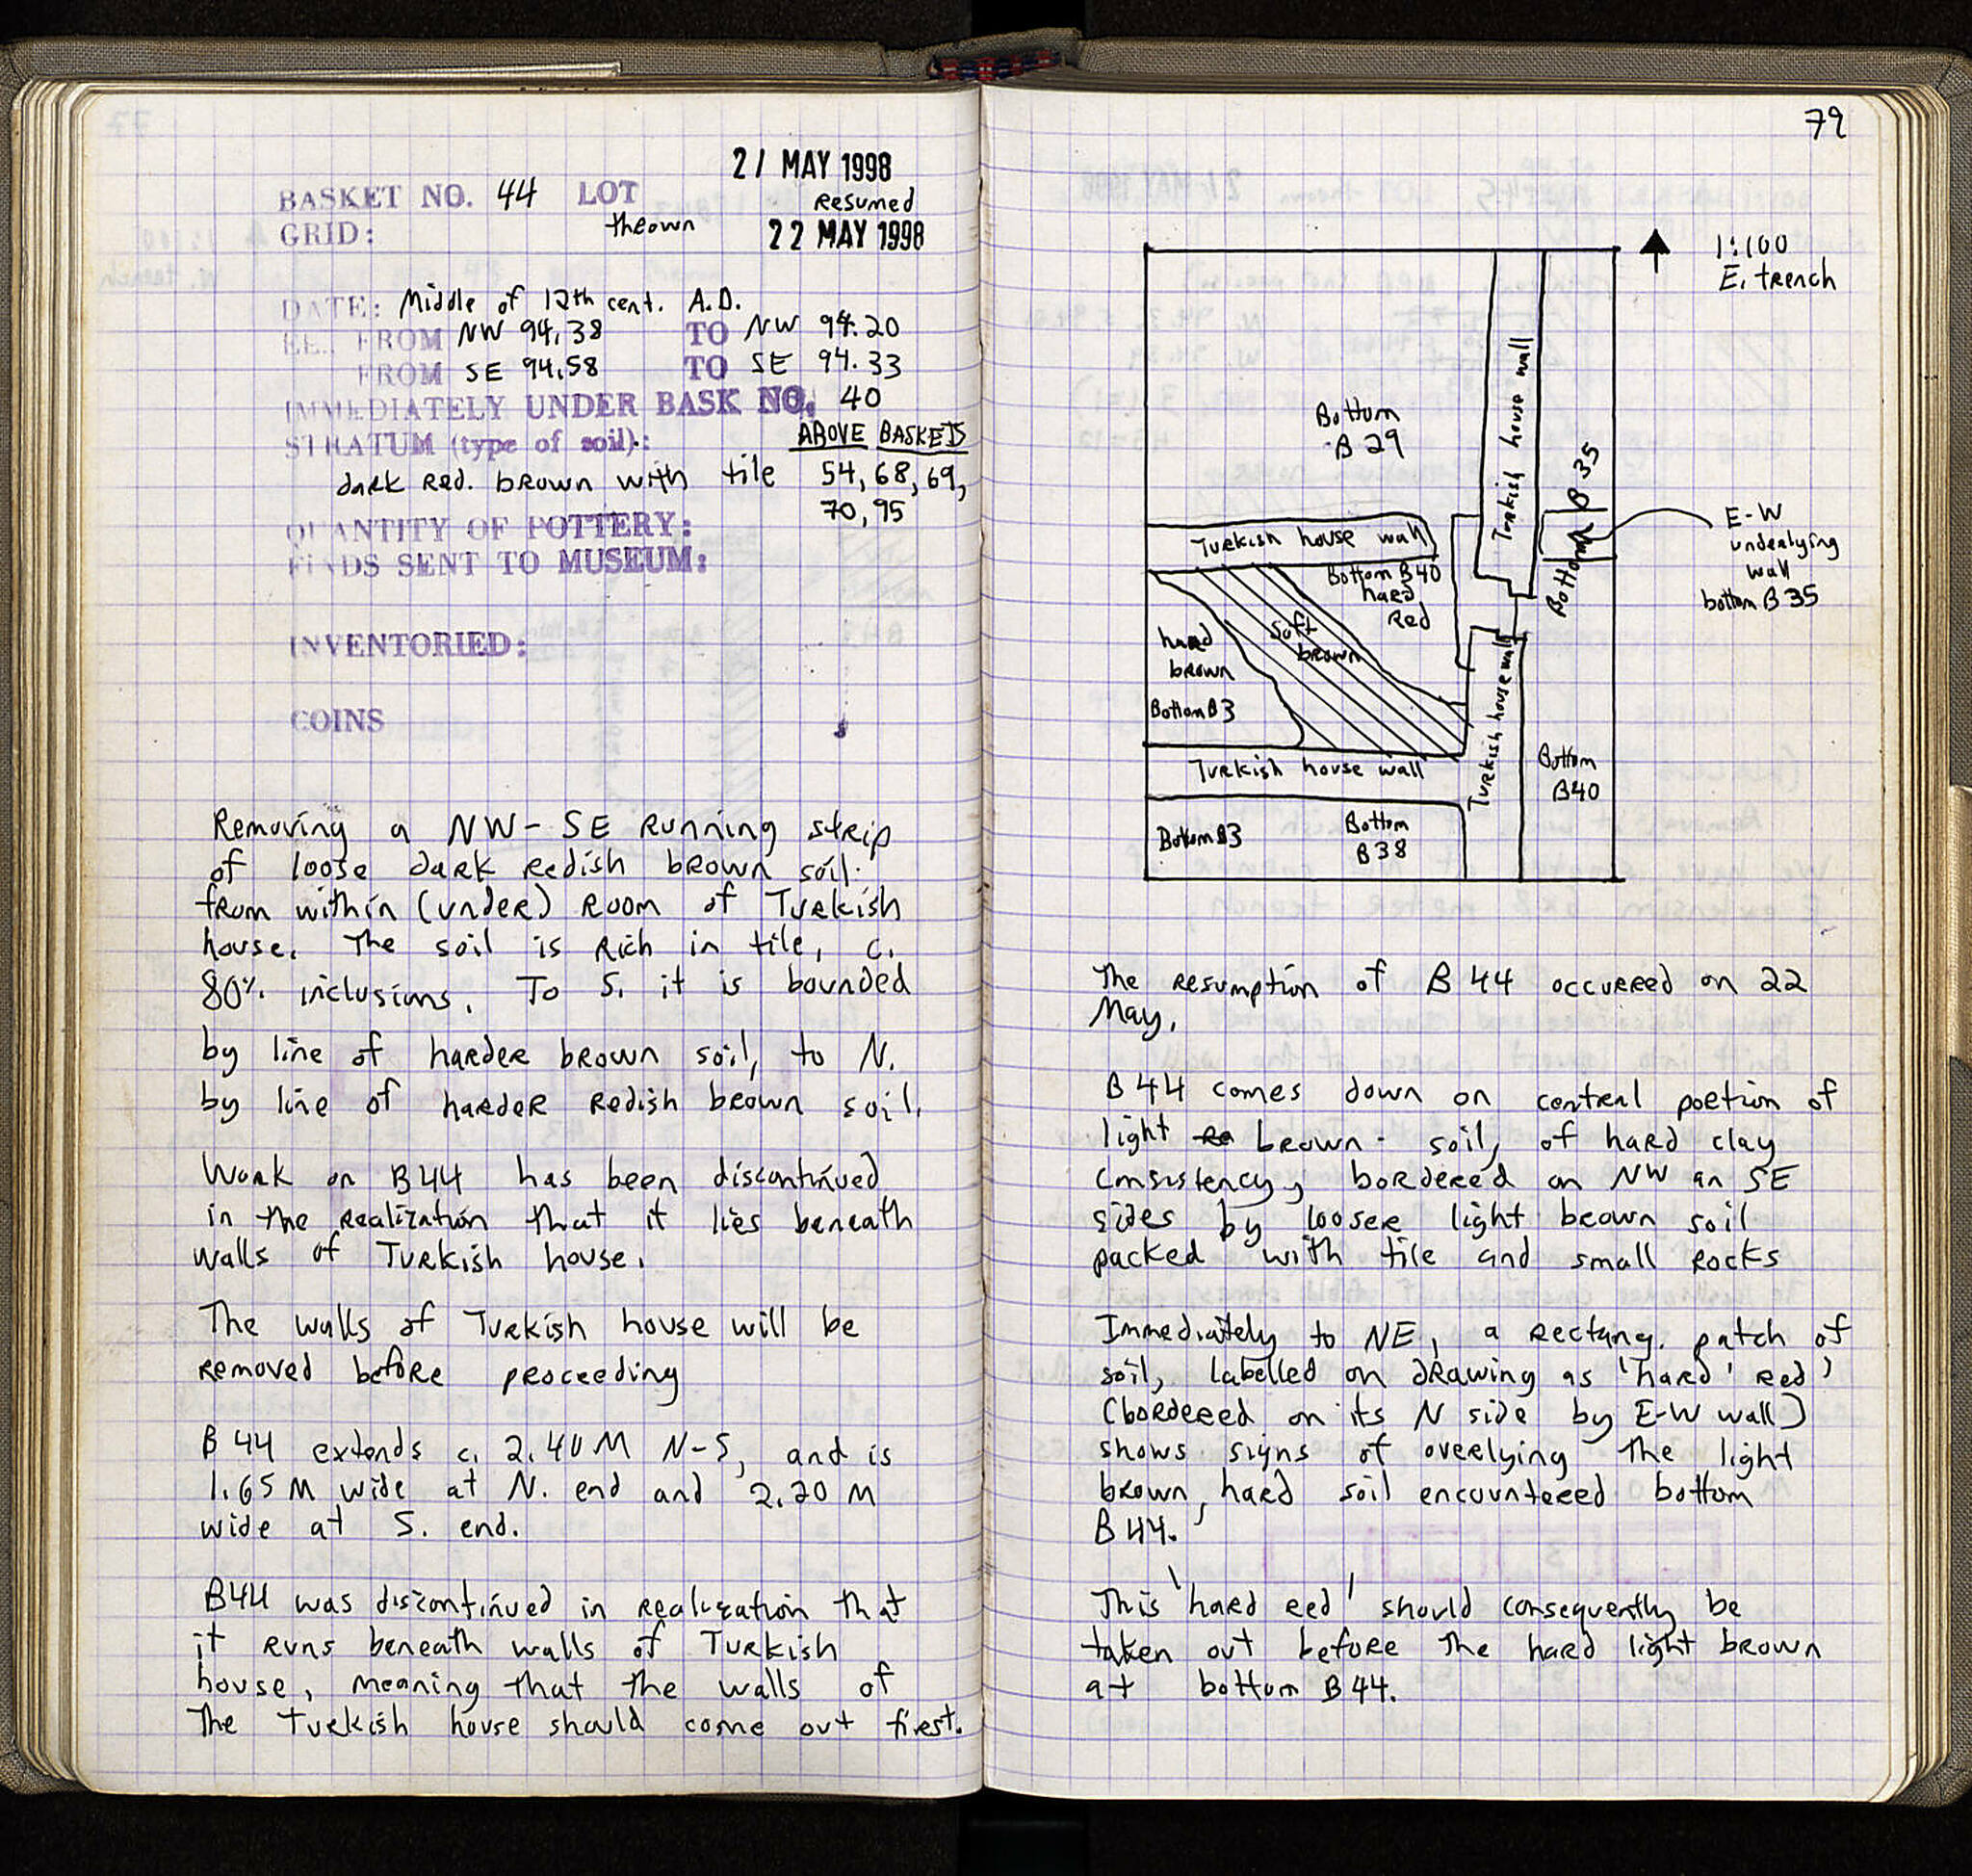 21 MAY 1998
BASKET NO. 44 LOT
Resumed
thrown
GRID:
22 MAY 1998
DATE: Middle of 12th cent. A.D.
EL. FROM NW 94.38 TO NW 94.20
FROM SE 94.58 TO SE 94.33
IMMEDIATELY UNDER BASK NO. 40
STRATUM (type of soil): ABOVE BASKETS
dark Red. brown with tile 54, 68, 69,
70, 95
QUANTITY OF POTTERY:
FINDS SENT TO MUSEUM:
INVENTORIED:
COINS
Removing a NW-SE Running strip
of loose dark Redish brown soil
from within (under) Room of Turkish
house. The soil is Rich in tile, c.
80% inclusions. To S. it is bounded
by line of harder brown soil, to N.
by line of harder Redish brown soil.
Work on B44 has been discontinued
in the Realization that it lies beneath
walls of Turkish house.
The walls of Turkish house will be
Removed before proceeding
B 44 extends c. 2.40 M N-S, and is
1.65 M wide at N. end and 2.20 M
wide at S. end.
B44 was discontinued in Realization that
it Runs beneath walls of Turkish
house, meaning that the walls of
The Turkish house should come out first.
79
1:100
E. trench
Turkish house wall
Bottom
B 29
Bottom B 35
E-W
underlying
wall
bottom B 35
Turkish house wall
Bottom B40
hard
Red
Soft
brown
hard
brown
Bottom B3
Turkish house wall
Turkish house wall
Bottom
B40
Bottom B3
Bottom
B38
The Resumption of B 44 occurred on 22
May.
B 44 comes down on central portion of
light brown soil, of hard clay
consistency, bordered on NW an SE
sides by looser light brown soil
packed with tile and small Rocks
Immediately to NE, a Rectang. patch of
soil, labelled on drawing as 'hard' Red'
(bordered on its N side by E-W wall)
shows signs of overlying the light
brown, hard soil encountered bottom
B 44.
This 'hard Red' should consequently be
taken out before the hard light brown
at bottom B 44.